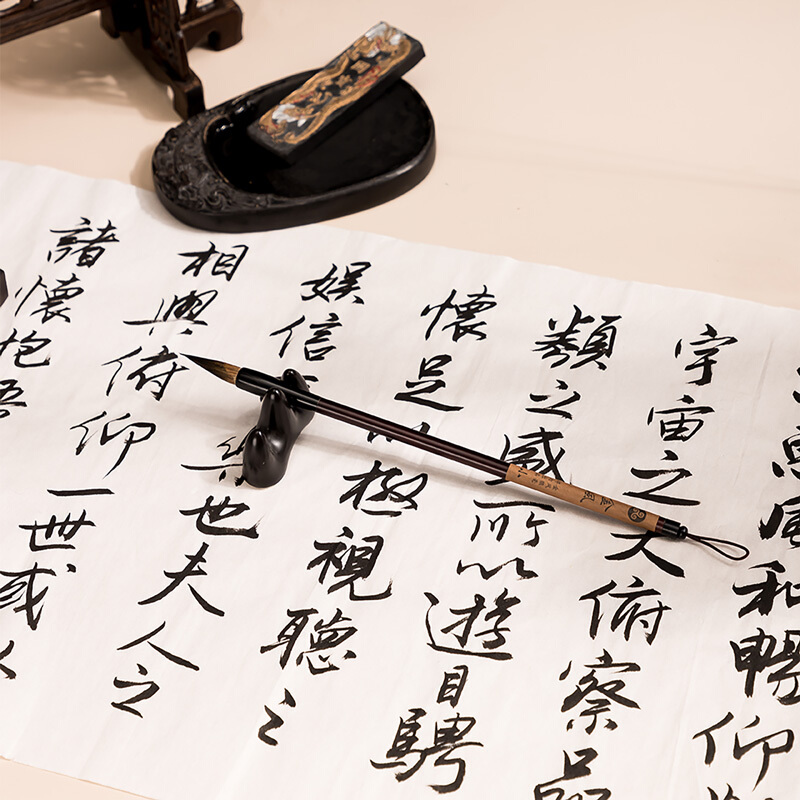 惠風和暢仰
宇宙之大俯察品
類之盛所以遊目騁
懷足以極視聽之
娛信也夫人之
相與俯仰一世或
諸懷抱悟